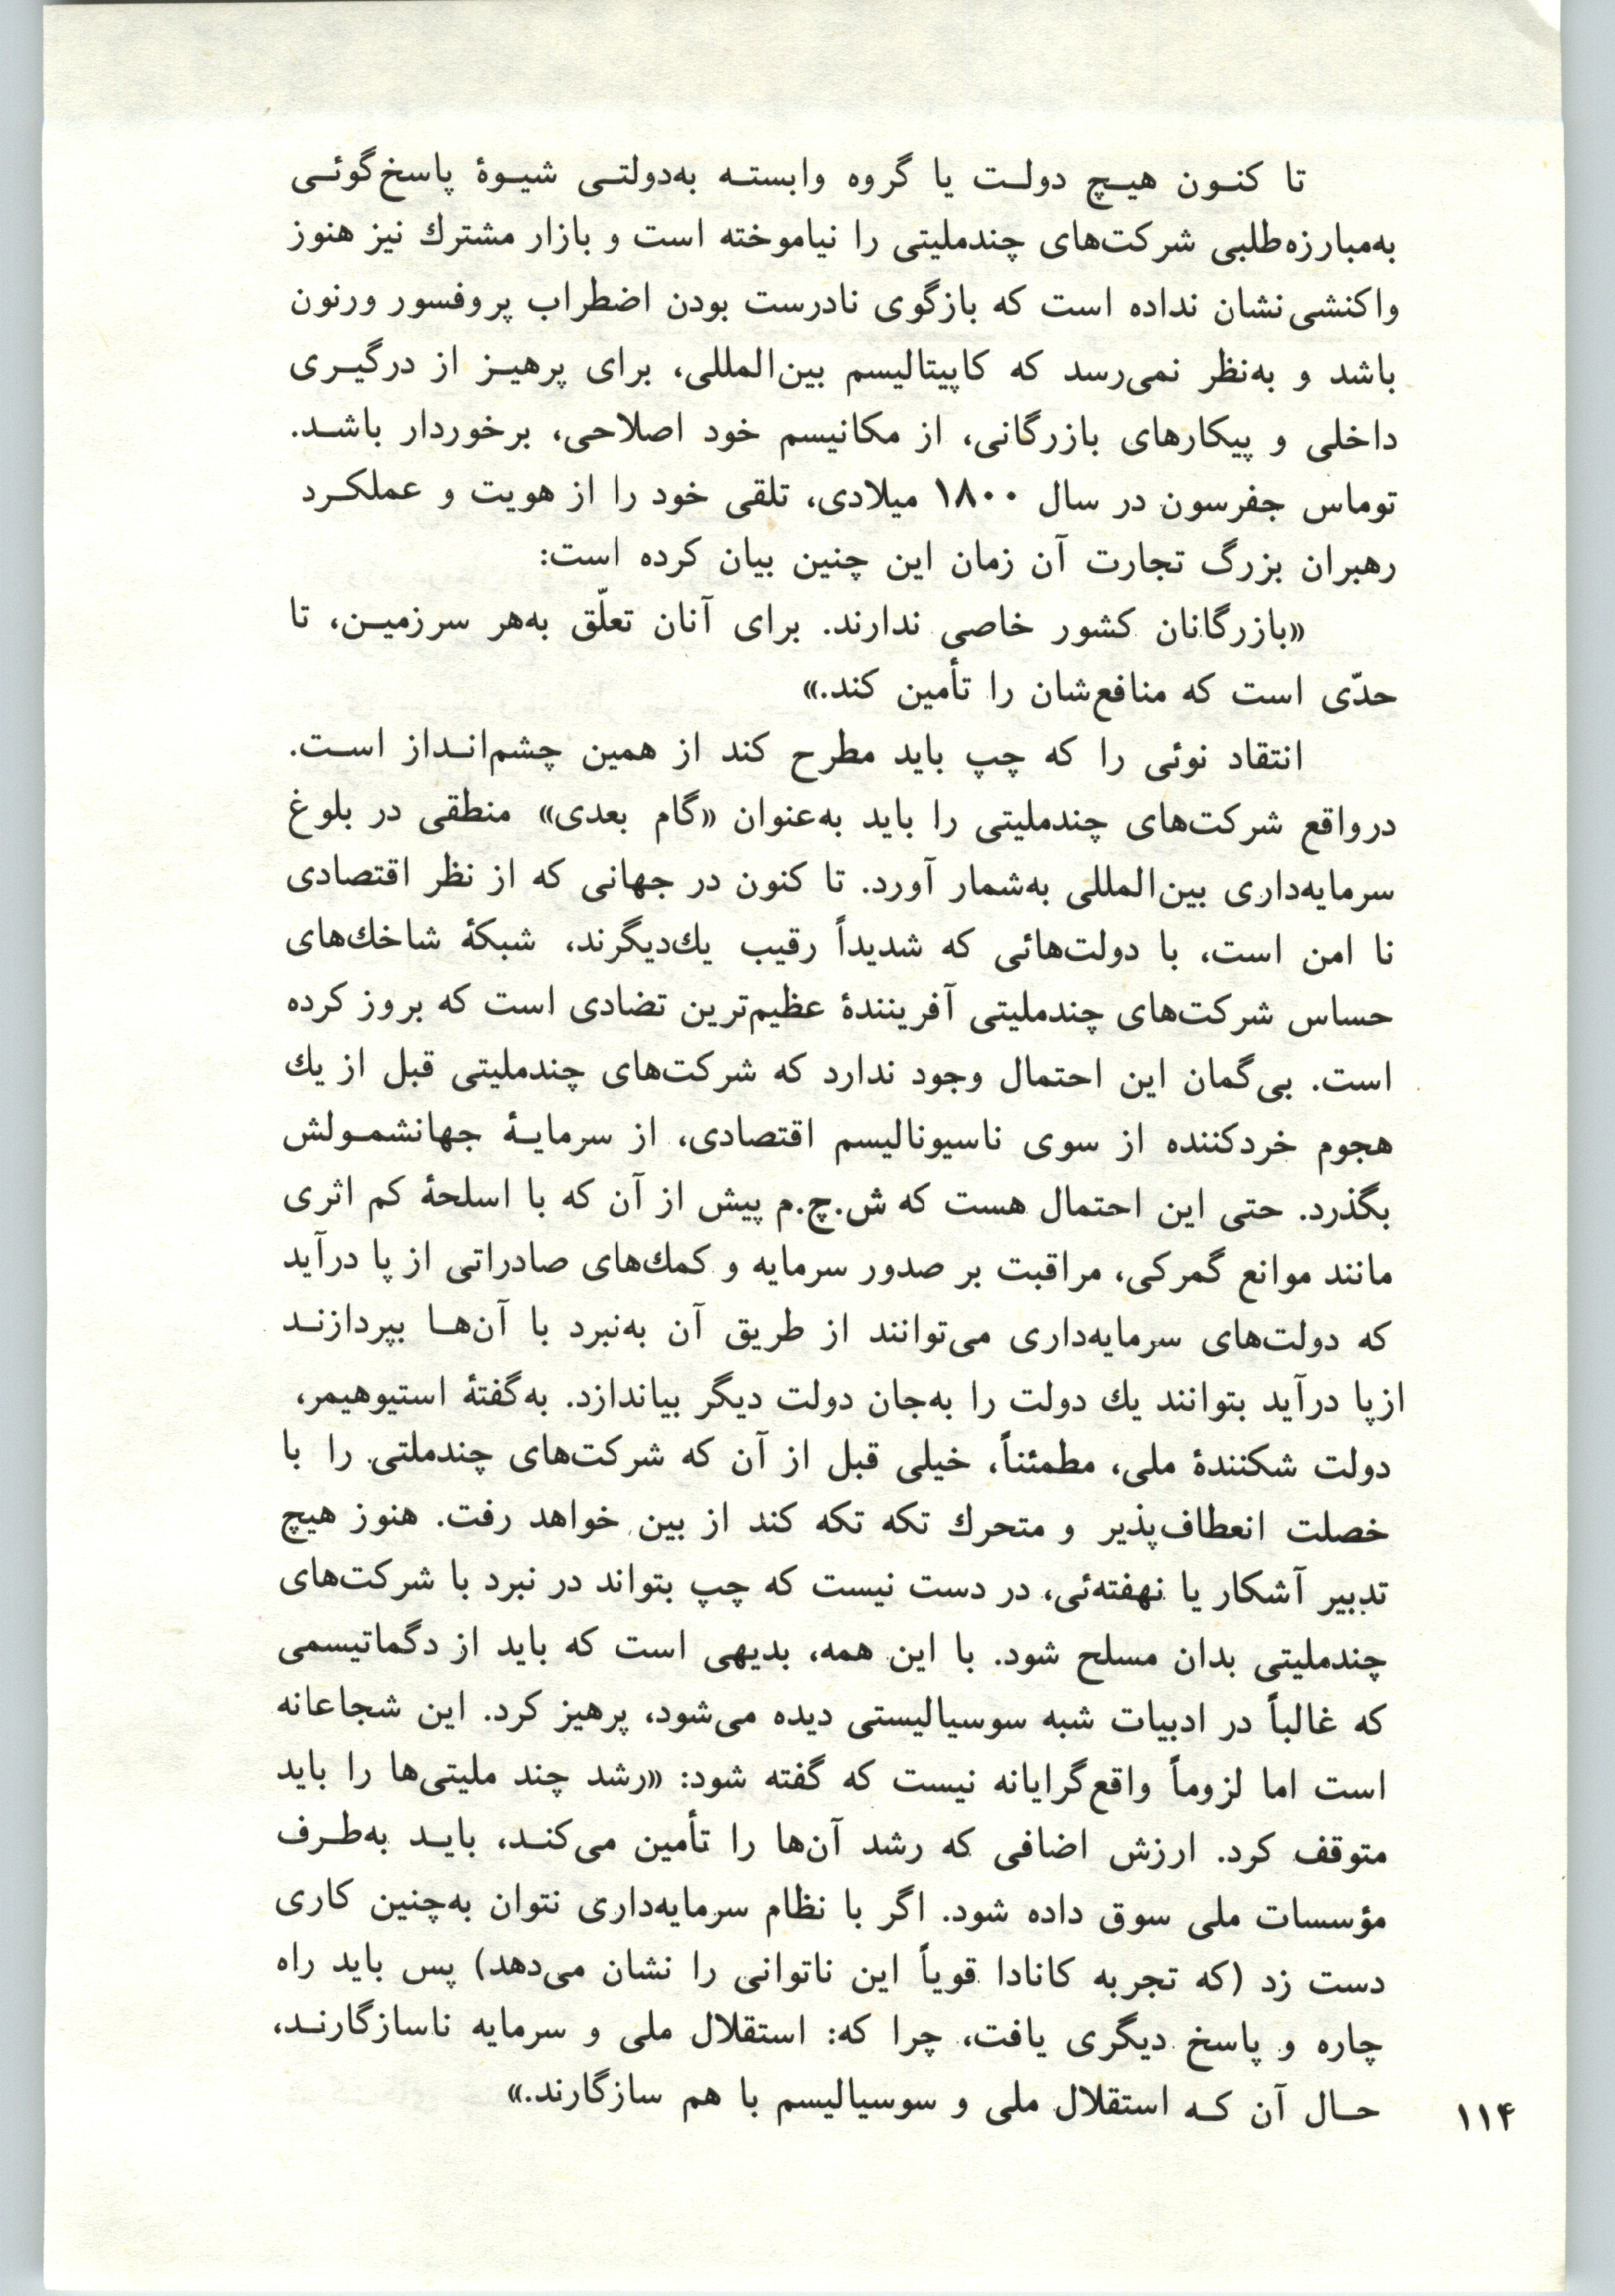 تا کنون هیچ دولت یا گروه وابسته به‌دولتی شیوهٔ پاسخ‌گوئی
به‌مبارزه‌طلبی شرکت‌های چندملیتی را نیاموخته است و بازار مشترك نیز هنوز
واکنشی نشان نداده است که بازگوی نادرست بودن اضطراب پروفسور ورنون
باشد و به‌نظر نمی‌رسد که کاپیتالیسم بین‌المللی، برای پرهیز از درگیری
داخلی و پیکارهای بازرگانی، از مکانیسم خود اصلاحی، برخوردار باشد.
توماس جفرسون در سال ۱۸۰۰ میلادی، تلقی خود را از هویت و عملکرد
رهبران بزرگ تجارت آن زمان این چنین بیان کرده است:
«بازرگانان کشور خاصی ندارند. برای آنان تعلّق به‌هر سرزمین، تا
حدّی است که منافع‌شان را تأمین کند.»
انتقاد نوئی را که چپ باید مطرح کند از همین چشم‌انداز است.
درواقع شرکت‌های چندملیتی را باید به‌عنوان «گام بعدی» منطقی در بلوغ
سرمایه‌داری بین‌المللی به‌شمار آورد. تا کنون در جهانی که از نظر اقتصادی
نا امن است، با دولت‌هائی که شدیداً رقیب یك‌دیگرند، شبکهٔ شاخك‌های
حساس شرکت‌های چندملیتی آفرینندهٔ عظیم‌ترین تضادی است که بروز کرده
است. بی‌گمان این احتمال وجود ندارد که شرکت‌های چندملیتی قبل از یك
هجوم خردکننده از سوی ناسیونالیسم اقتصادی، از سرمایهٔ جهانشمولش
بگذرد. حتی این احتمال هست که ش.چ.م پیش از آن که با اسلحهٔ کم اثری
مانند موانع گمرکی، مراقبت بر صدور سرمایه و کمك‌های صادراتی از پا درآید
که دولت‌های سرمایه‌داری می‌توانند از طریق آن به‌نبرد با آن‌ها بپردازند
ازپا درآید بتوانند یك دولت را به‌جان دولت دیگر بیاندازد. به‌گفتهٔ استیوهیمر،
دولت شکنندهٔ ملی، مطمئناً، خیلی قبل از آن که شرکت‌های چندملتی را با
خصلت انعطاف‌پذیر و متحرك تکه تکه کند از بین خواهد رفت. هنوز هیچ
تدبیر آشکار یا نهفته‌ئی، در دست نیست که چپ بتواند در نبرد با شرکت‌های
چندملیتی بدان مسلح شود. با این همه، بدیهی است که باید از دگماتیسمی
که غالباً در ادبیات شبه سوسیالیستی دیده می‌شود، پرهیز کرد. این شجاعانه
است اما لزوماً واقع‌گرایانه نیست که گفته شود: «رشد چند ملیتی‌ها را باید
متوقف کرد. ارزش اضافی که رشد آن‌ها را تأمین می‌کند، باید به‌طرف
مؤسسات ملی سوق داده شود. اگر با نظام سرمایه‌داری نتوان به‌چنین کاری
دست زد (که تجربه کانادا قویاً این ناتوانی را نشان می‌دهد) پس باید راه
چاره و پاسخ دیگری یافت، چرا که: استقلال ملی و سرمایه ناسازگارند،
حال آن که استقلال ملی و سوسیالیسم با هم سازگارند.»
۱۱۴